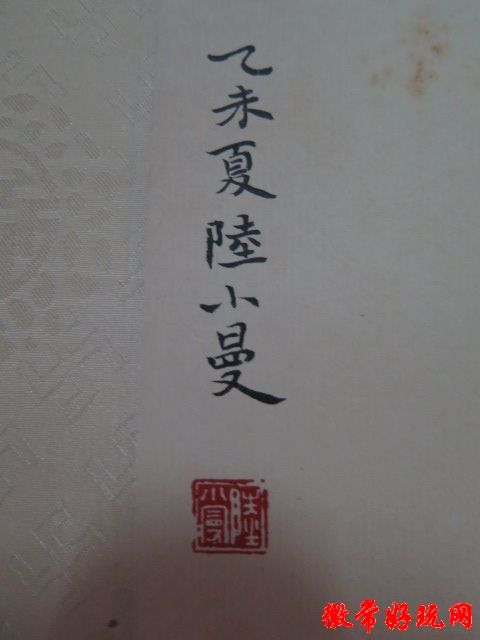 乙未夏陸小曼
陸小曼
徽常好玩网